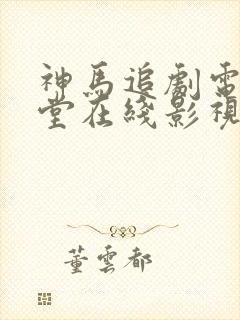 神馬追劇電
堂在綫影視
董雲都